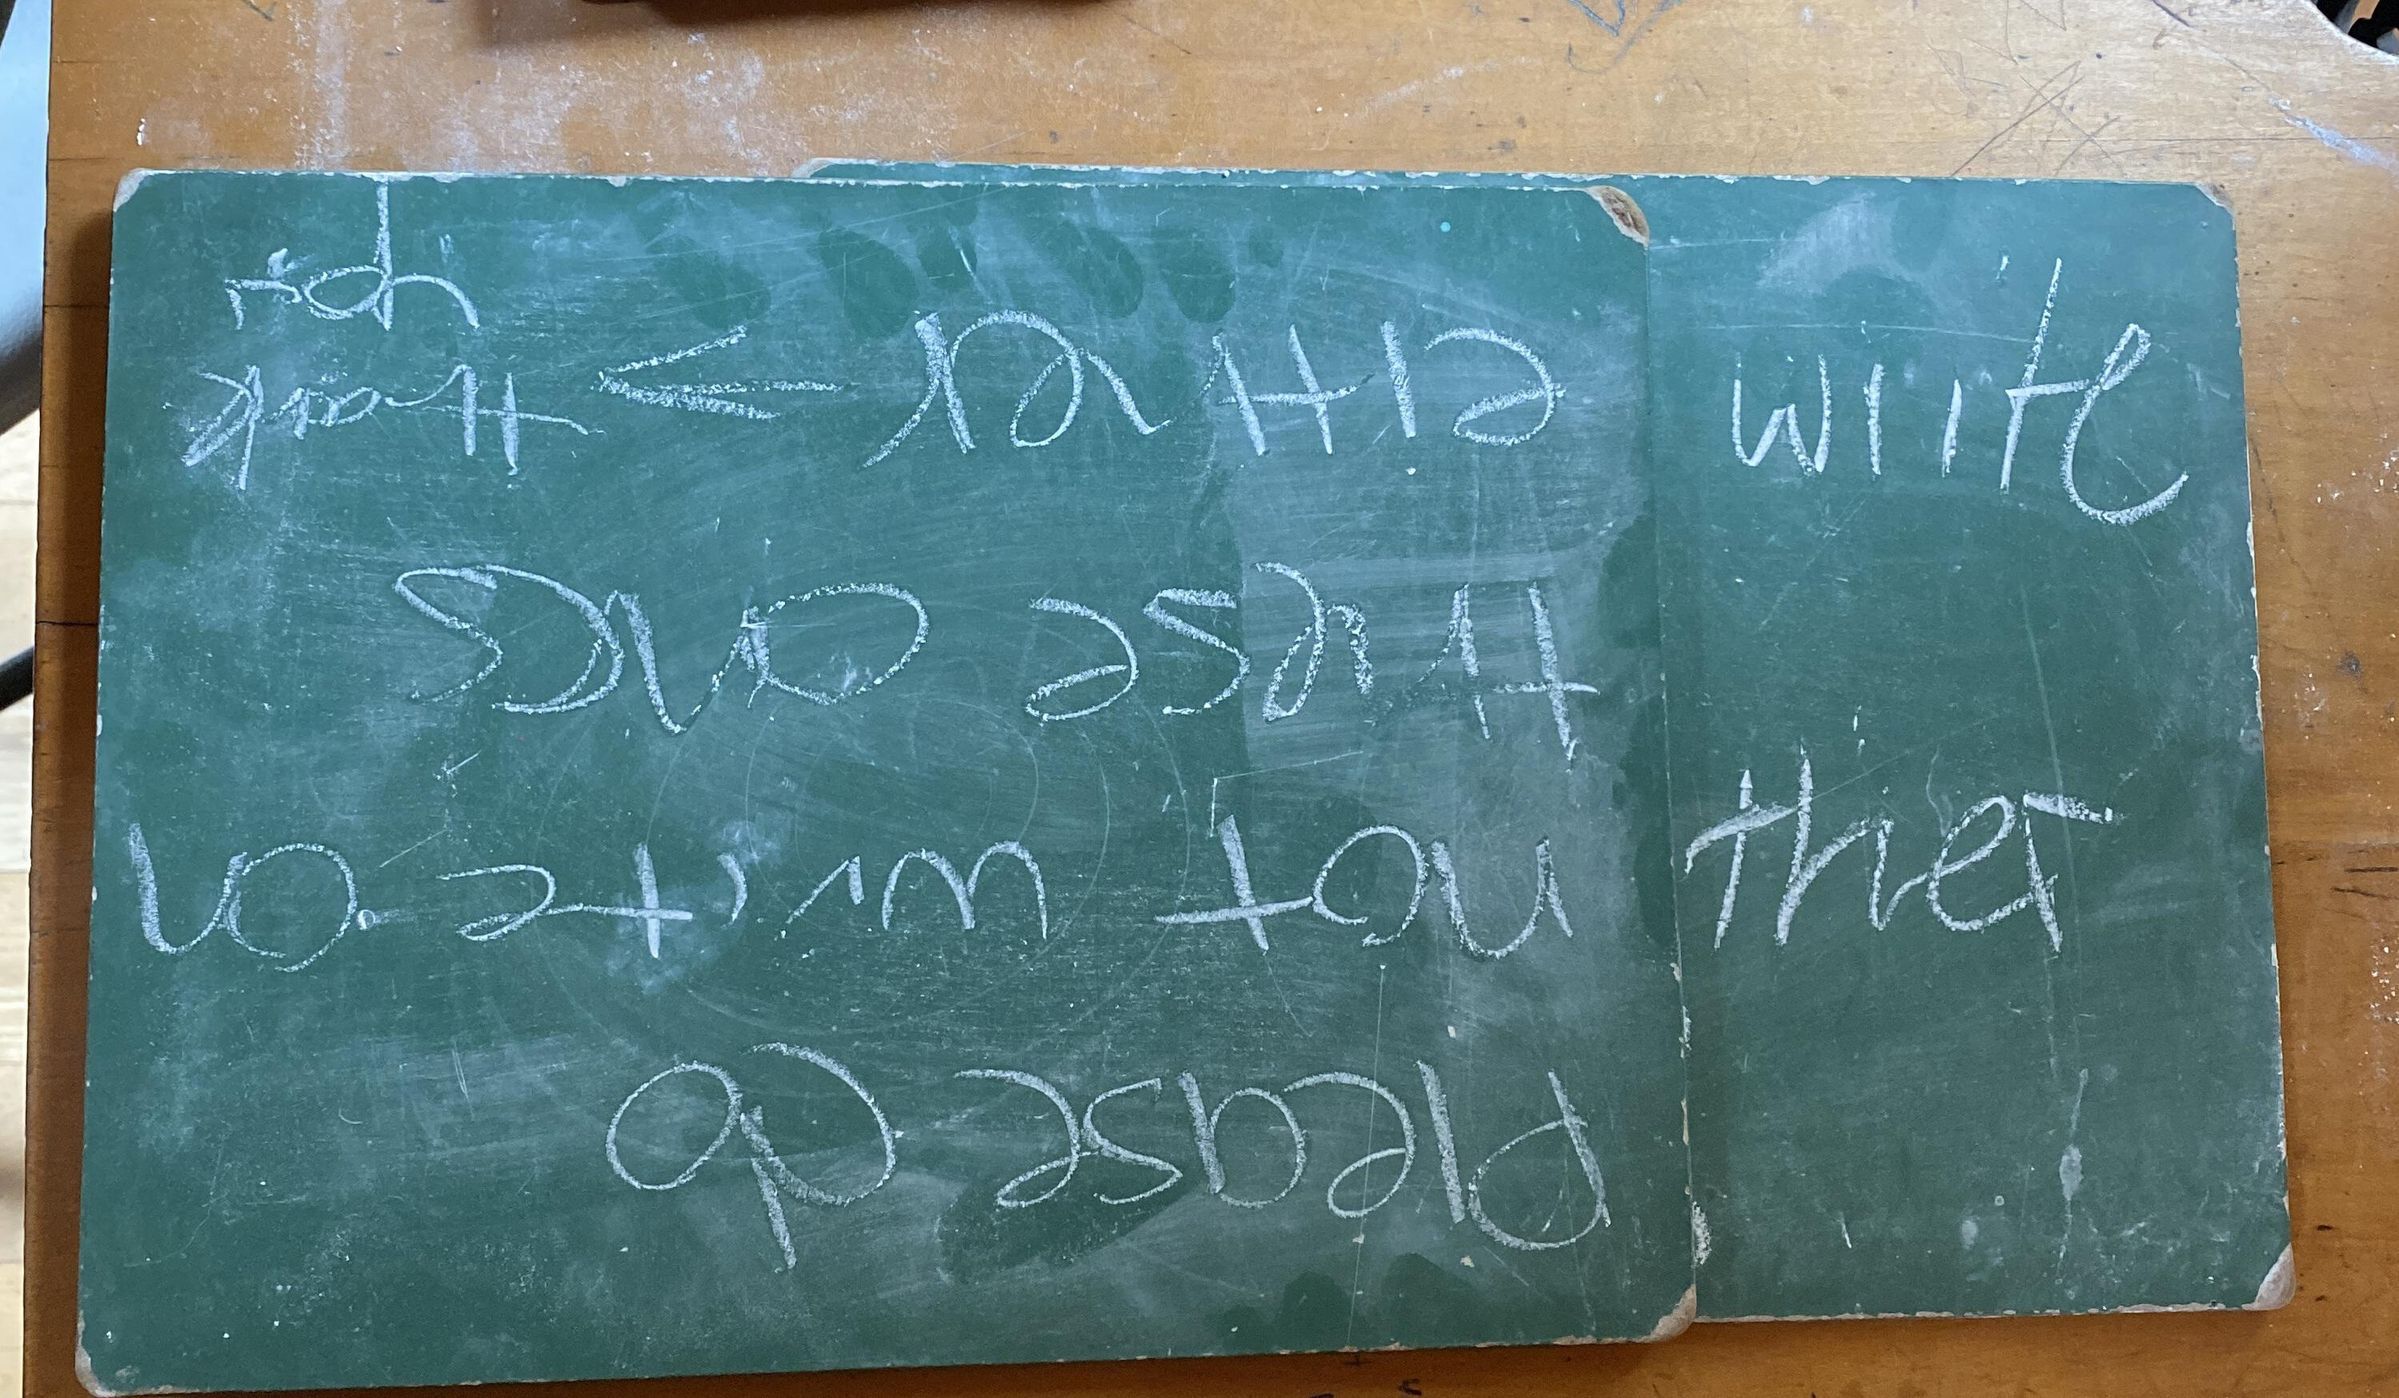 Please do
not write on
these ones
either → thank
you
write
ther